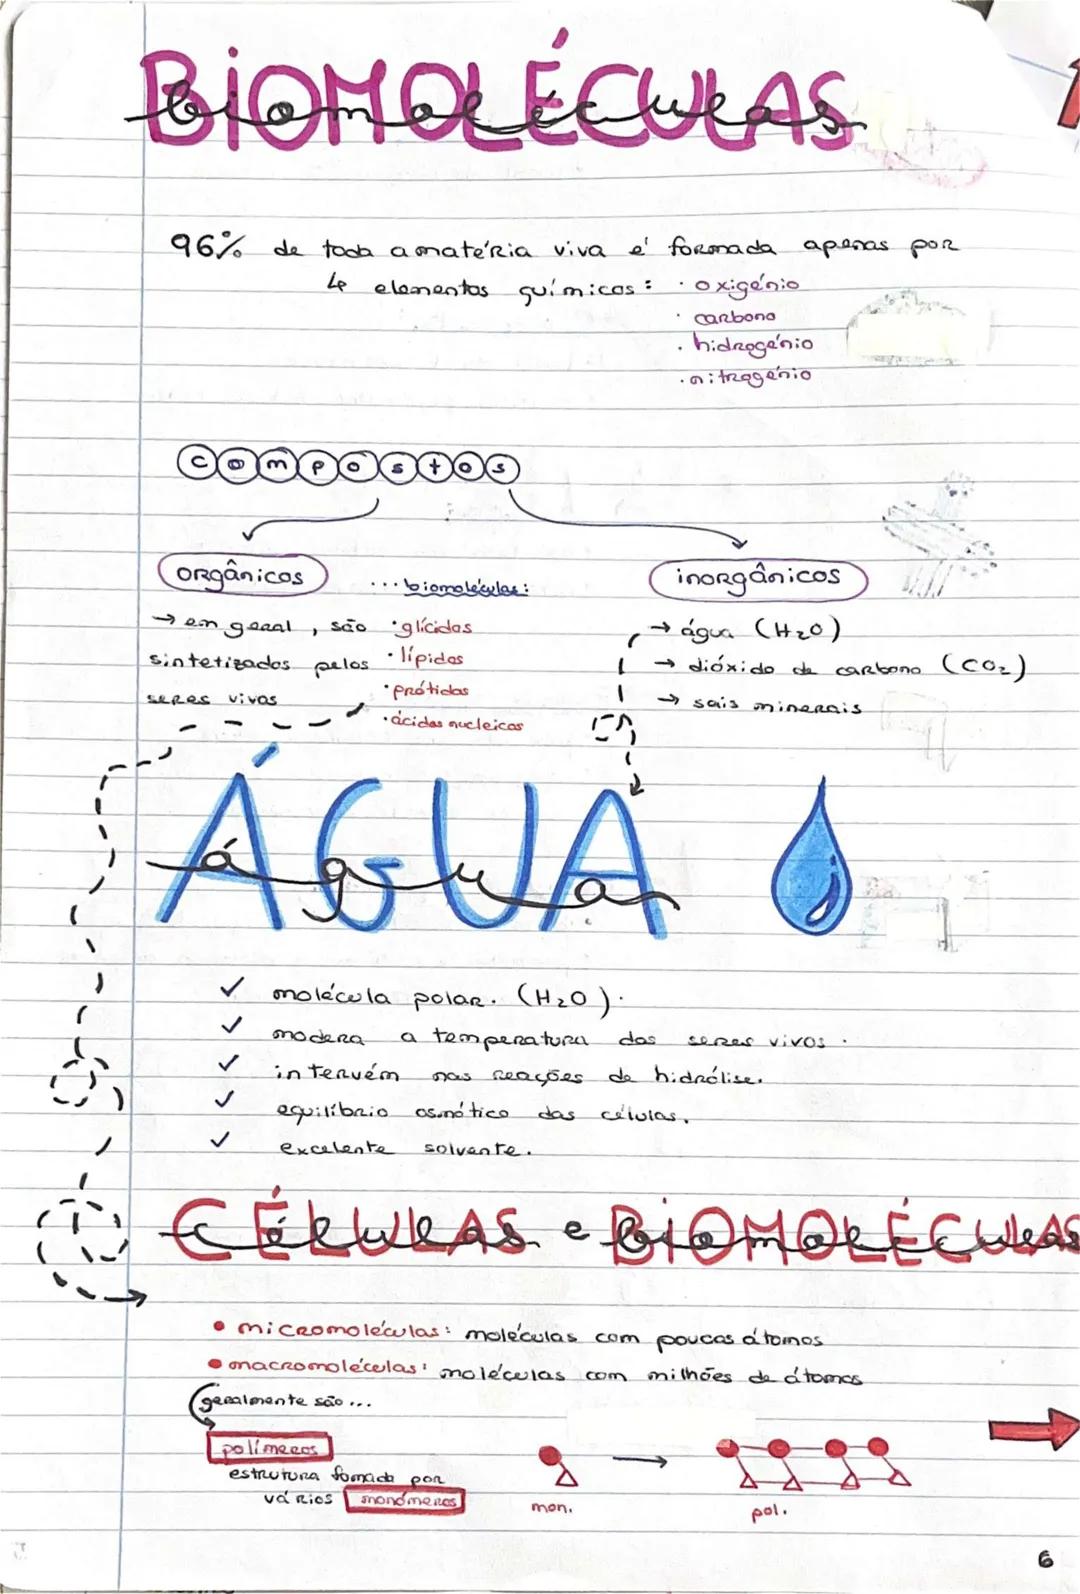 BIOMOLÉCULAS
biomoléculas
96% de toda a matéria viva é formada apenas por
4 elementos químicos: · oxigénio
· carbono
· hidrogénio
· nitrogénio
compostos
orgânicos
... biomoléculas:
inorgânicos
→ em geral, são
sintetizados pelos
seres vivos
· glícidos
· lípidos
· prótidos
· ácidos nucleicos
→ água (H₂O)
→ dióxido de carbono (CO₂)
→ sais minerais
ÁGUA
água
✓ molécula polar. (H₂O).
✓ modera a temperatura dos seres vivos.
✓ intervém nas reações de hidrólise.
✓ equilíbrio osmótico das células.
✓ excelente solvente.
CÉLULAS e BIOMOLÉCULAS
células e biomoléculas
• micromoléculas: moléculas com poucos átomos
• macromoléculas: moléculas com milhões de átomos
geralmente são...
polímeros
estrutura fomada por
vários monómeros
mon. → pol.
6